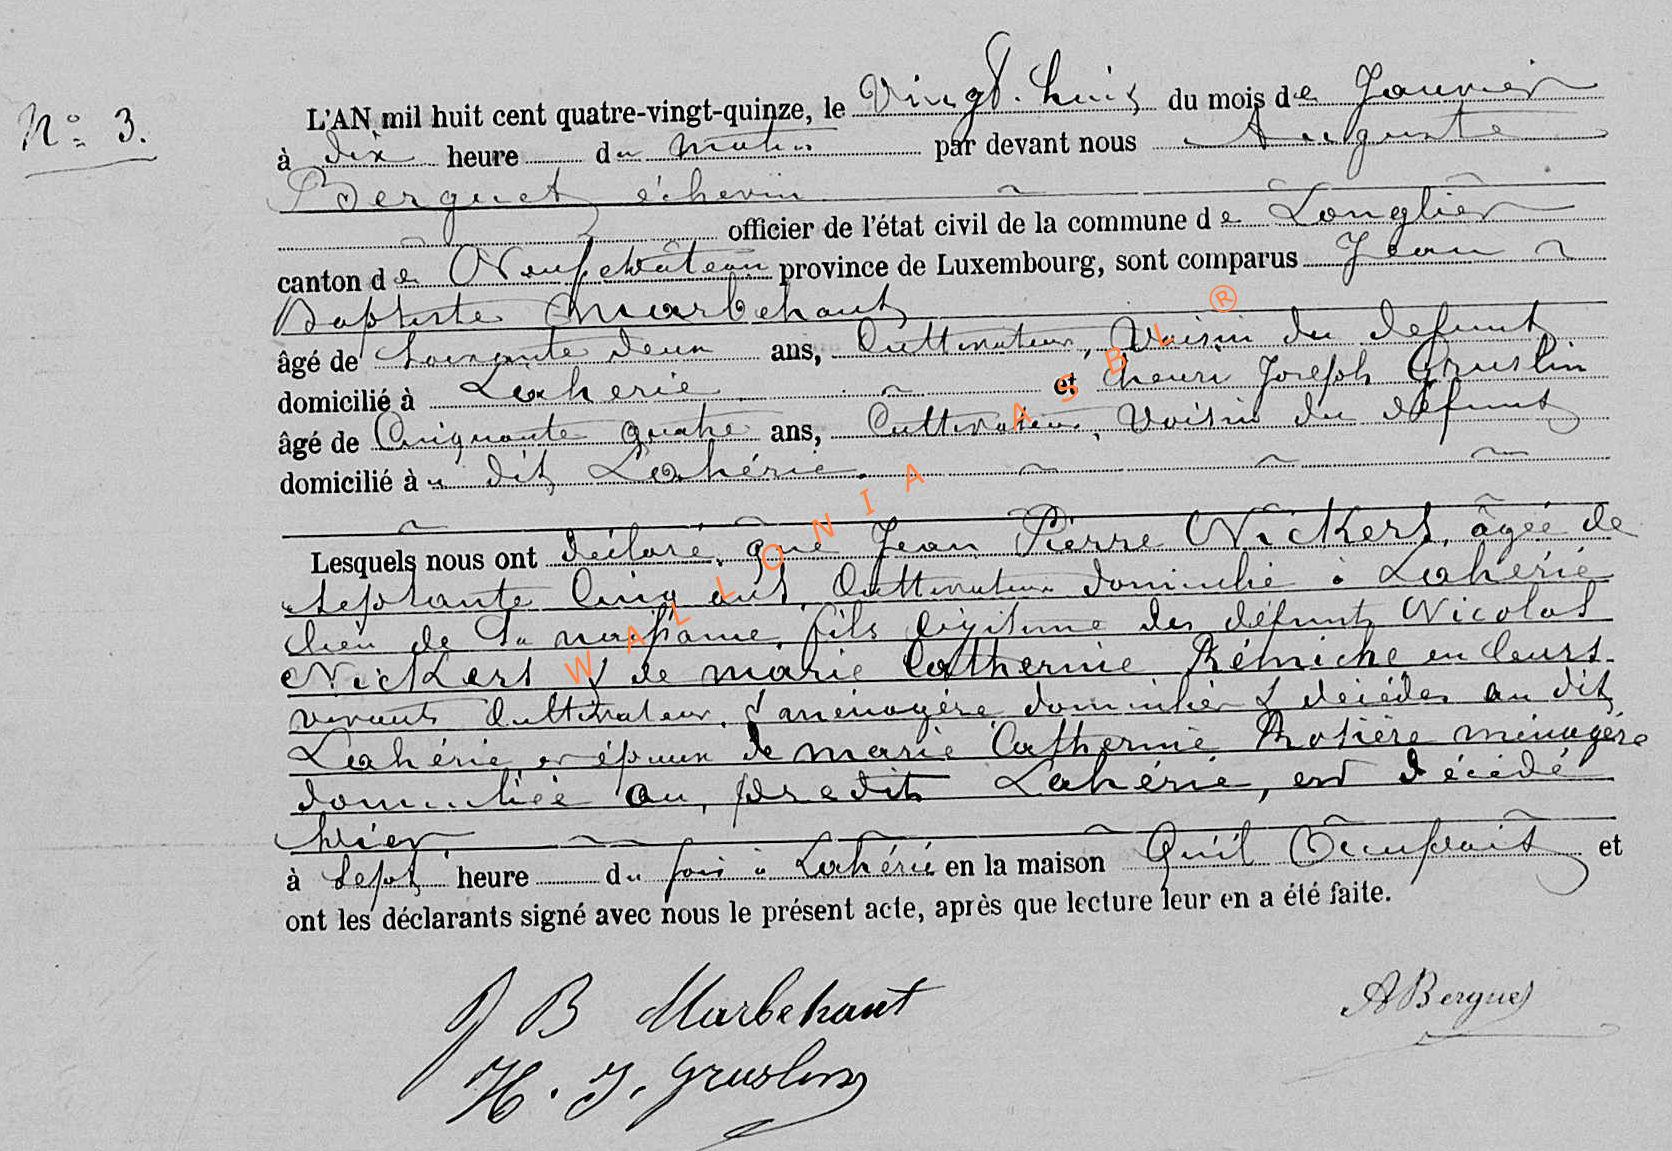 N° 3.
L'AN mil huit cent quatre-vingt-quinze, le Vingt-huit du mois de Janvier
à dix heure du matin par devant nous Auguste
Berguet échevin
officier de l'état civil de la commune de Longlier
canton de Neufchâteau province de Luxembourg, sont comparus Jean
Baptiste Marbehant
âgé de soixante deux ans, Cultivateur, Voisin du defunt
domicilié à Lahérie et henri Joseph Gruslin
âgé de Cinquante quatre ans, Cultivateur, Voisin du défunt
domicilié à u dit Lahérie.
Lesquels nous ont déclaré que Jean Pierre Nickers, âgée de
septante Cinq ans, Cultivateur domicilié à Lahérie
lieu de sa naissance, fils légitime des défunts Nicolas
Nickers & de marie Catherine Rémiche en leurs
vivants Cultivateur & ménagère domiciliés & décédés au dit
Lahérie et époux de marie Catherine Rosière ménagère
domiciliée au predit Lahérie, est décédé
hier
à sept heure du soir à Lahérie en la maison Qu'il Occupait et
ont les déclarants signé avec nous le présent acte, après que lecture leur en a été faite.
J B Marbehant
ABerguet
H. J. Gruslin
WALLONIA ASBL ®